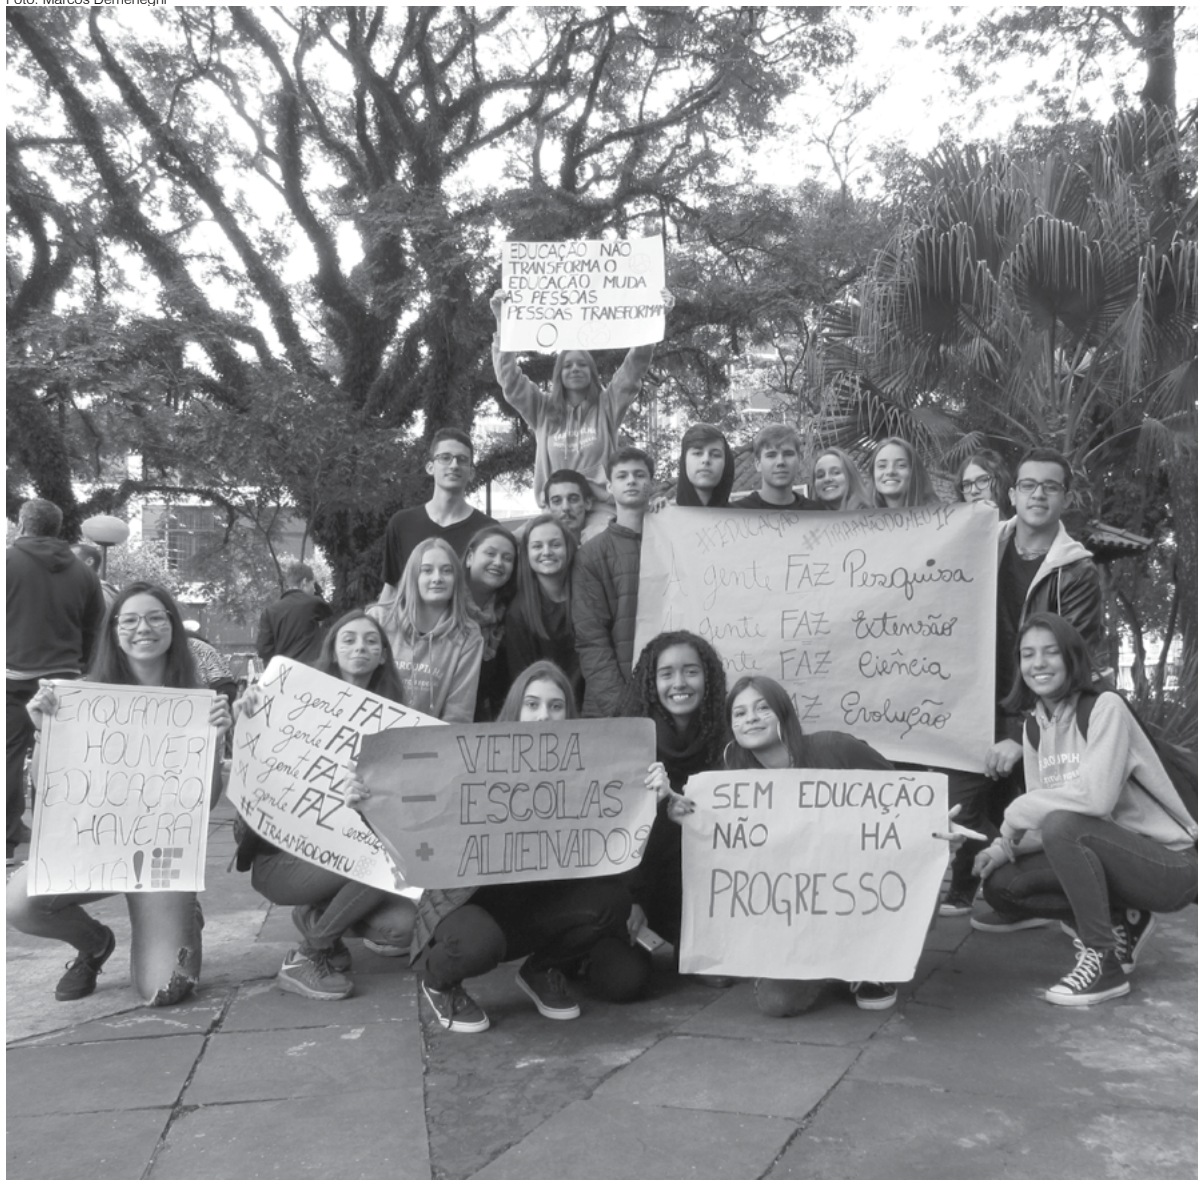 Foto: Marcos Demeneghi
EDUCAÇÃO NÃO
TRANSFORMA O
EDUCAÇÃO MUDA
AS PESSOAS
PESSOAS TRANSFORMAM
O
#EDUCAÇÃO #TIRAAMÃODOMEUIF
A gente FAZ Pesquisa
A gente FAZ Extensão
FAZ Ciência
FAZ Evolução
ENQUANTO
HOUVER
EDUCAÇÃO,
HAVERÁ
LUTA!
A gente FAZ
A gente FA
A gente FAZ
A gente FAZ evolução
#TIRAAMÃODOMEU
– VERBA
– ESCOLAS
+ ALIENADOS
SEM EDUCAÇÃO
NÃO HÁ
PROGRESSO